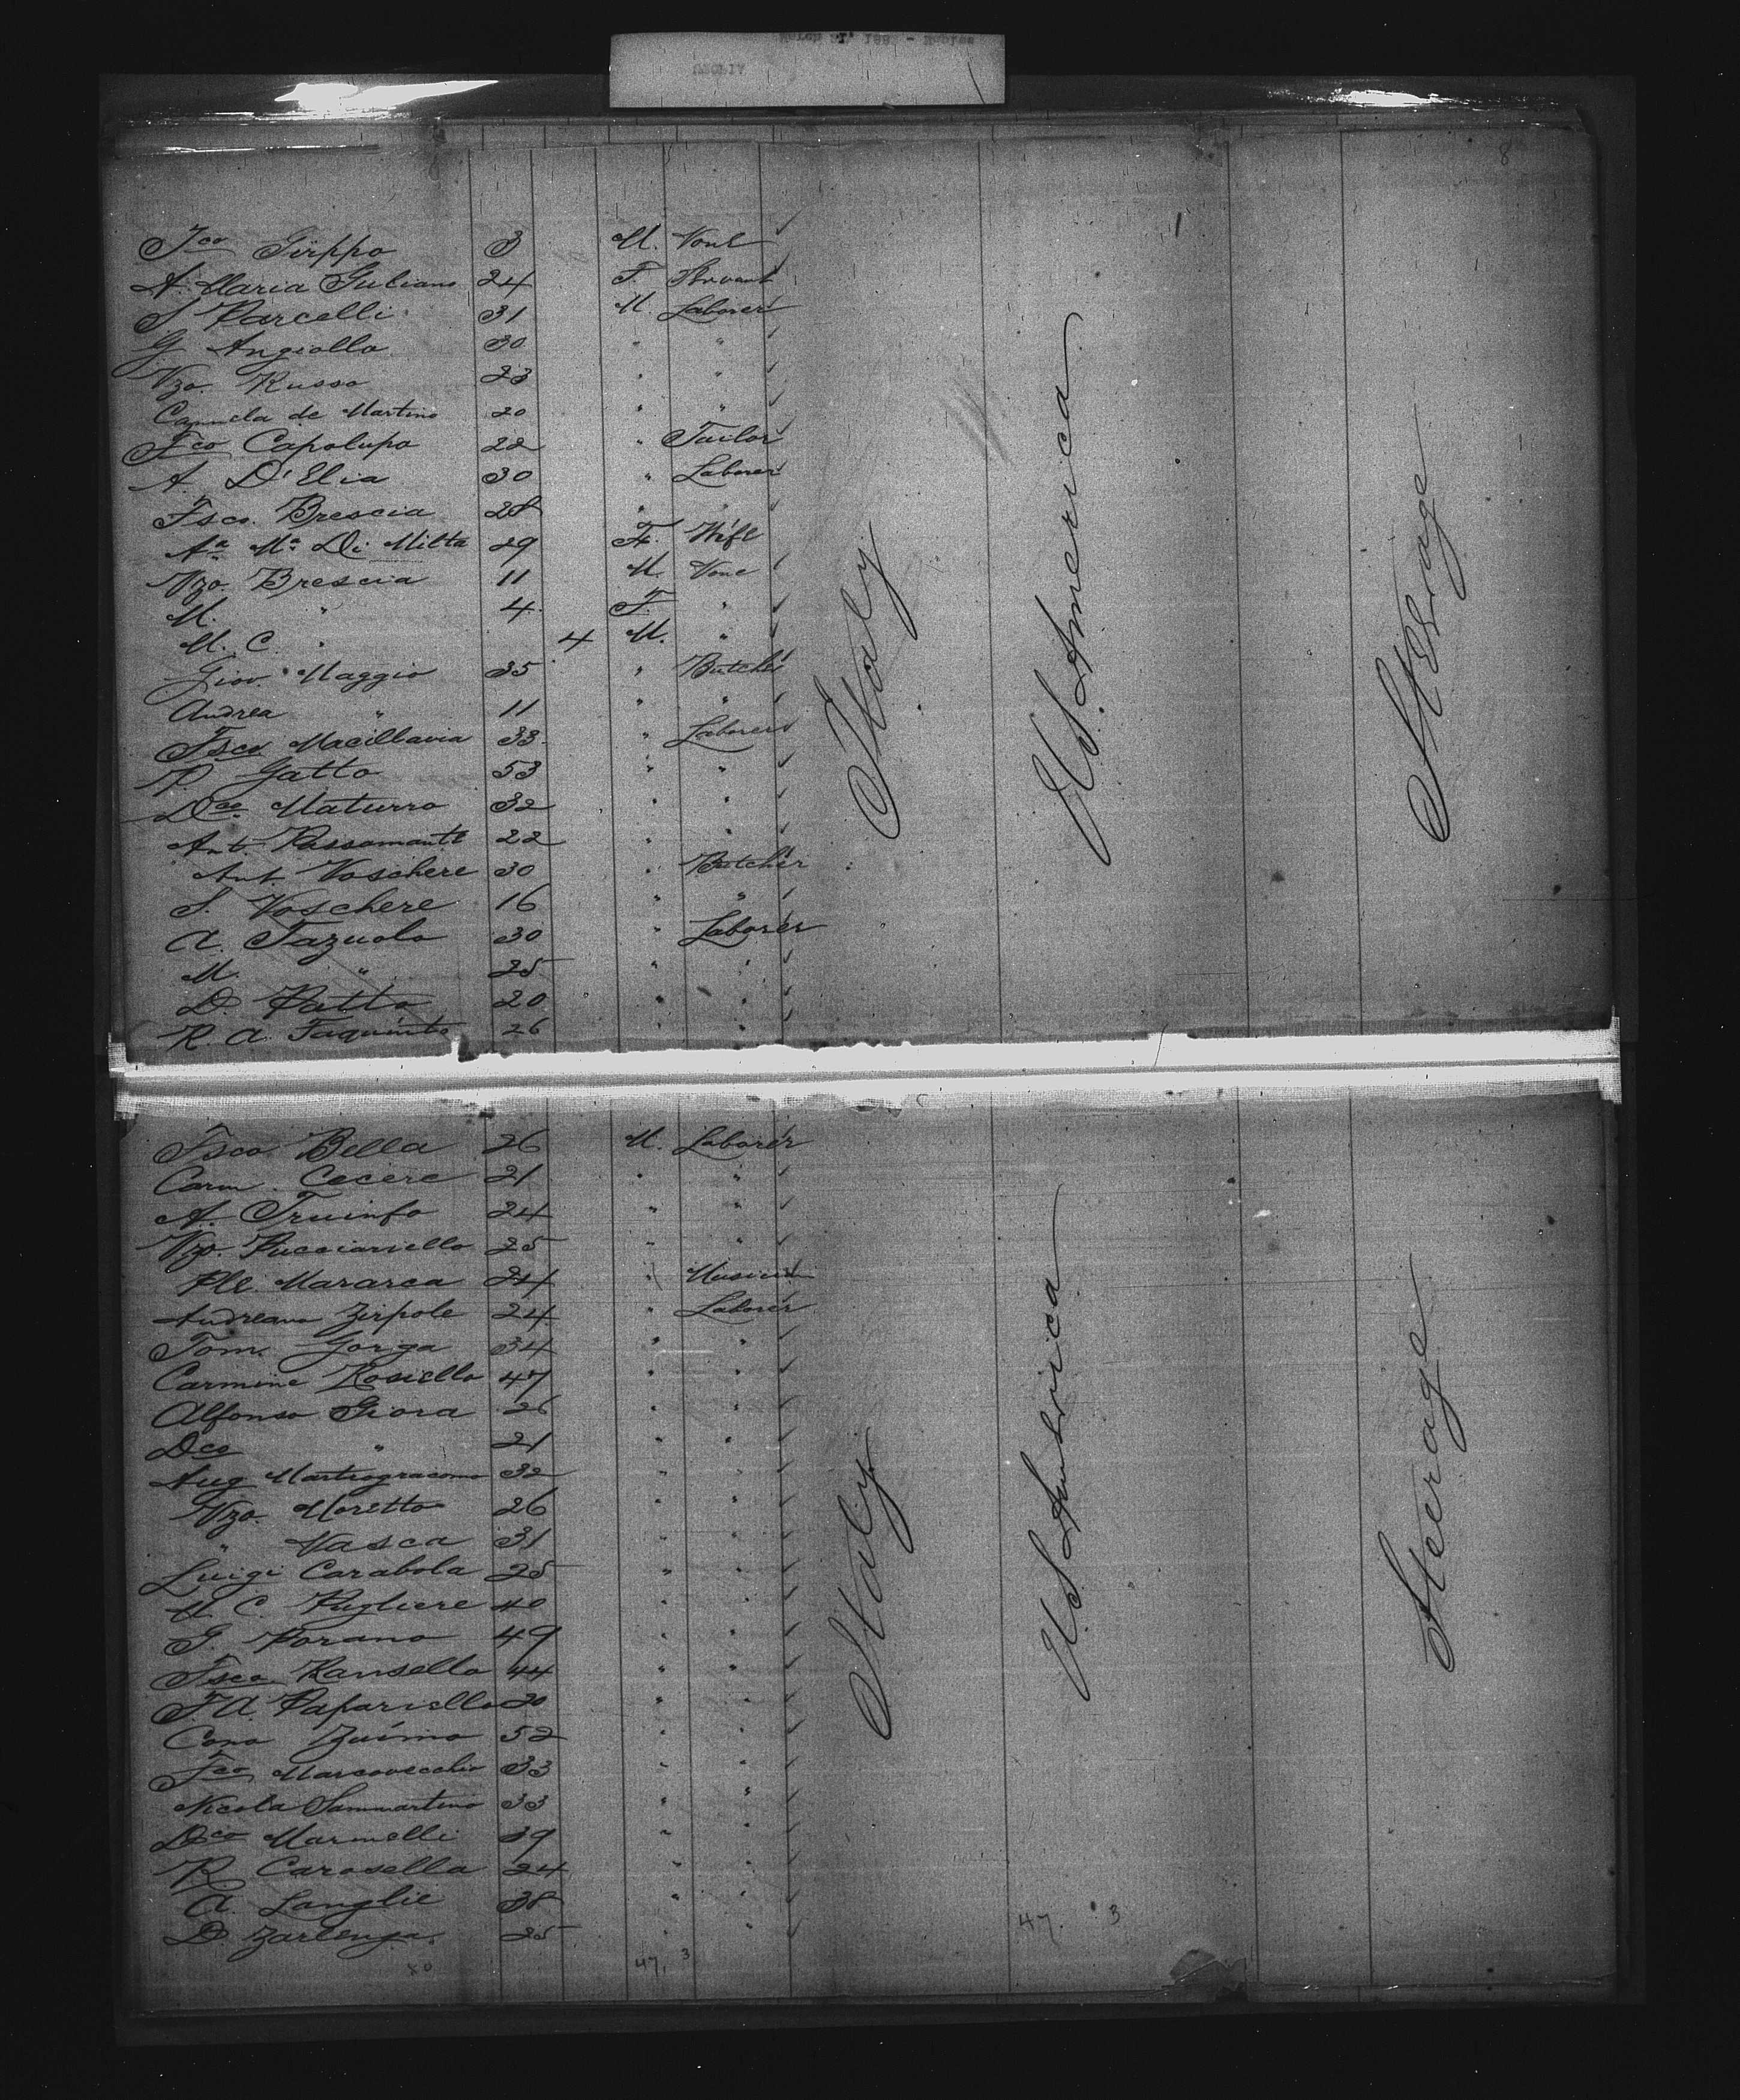 8
Fco Girppo 3 M. None
A. Maria Guliano 24 F. Servant
S Parcelli 31 M. Laborer
G Angiollo 30 " "
Vzo. Russo 23 " "
Carmela de Martino 20 " "
Fco Capolupo 22 " Tailor
A. D'Elia 30 " Laborer
Fsco. Brescia 28 " "
Aa Ma Di Militta 29 F. Wife
Vzo Brescia 11 M. None
M. " 4 F. "
M. C. " 4 M. "
Giov. Maggio 35 " Butcher
Andrea " 11 " "
Fsco Macillavia 33 " Laborer
P. Gatto 53 " "
Dco Maturro 32 " "
Ant. Passamante 22 " "
Ant. Voschere 30 " Butcher
S. Voschere 16 " "
A. Fazuolo 30 " Laborer
M. " 25 " "
D. Patto 20 " "
R. A. Faquinto 26 " "
Italy
U.S. America
Steerage
Fsco Bella 26 M. Laborer
Carm. Cecere 21 " "
A. Truinfo 24 " "
Vzo. Pucciariello 25 " "
Ple. Mararca 24 " Musician
Andreano Zirpole 24 " Laborer
Tom. Gorga 34 " "
Carmine Rosiello 47 " "
Alfonso Giora 26 " "
Dco " 21 " "
Aug Martrogracomo 32 " "
Vzo. Moretto 26 " "
" Masca 31 " "
Luigi Carabola 25 " "
M. C. Pugliere 40 " "
G. Porano 49 " "
Fsco Ransello 44 " "
F. A. Papariello 20 " "
Cono Zuimo 52 " "
Fco Marcovecchio 33 " "
Nicola Sammartino 33 " "
Dco Marinelli 39 " "
R Carosella 24 " "
A. Langlie 38 " "
D. Zarlenga 25 " "
Italy
U.S. America
Steerage
47. 3
47, 3